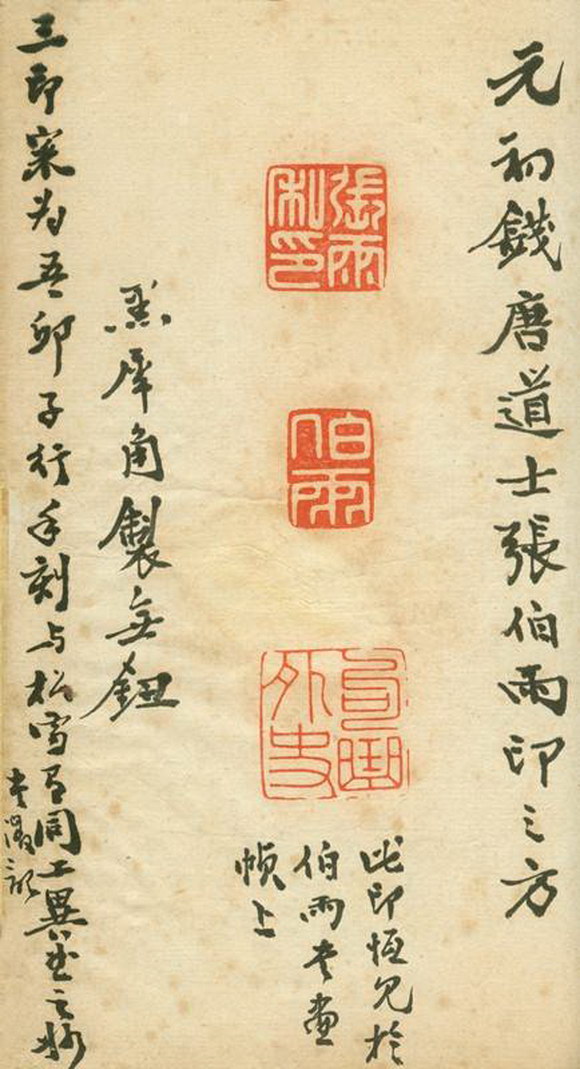 元初錢唐道士張伯雨印三方
張雨私印
伯雨
句曲外史
此印恆見於
伯雨書畫
幀上
黑犀角製無鈕
三印宷为吾邱子行手刻与松雪有同工異曲之妙